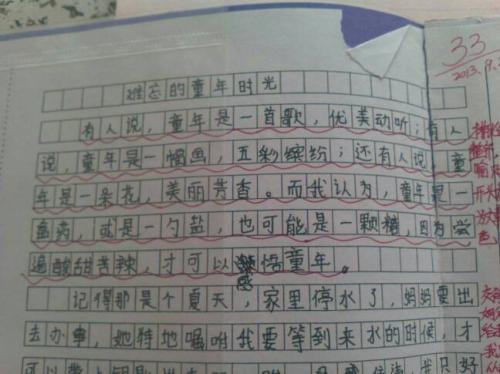 难忘的童年时光
33
2013.9.
有人说，童年是一首歌，优美动听；有人
说，童年是一幅画，五彩缤纷；还有人说，童
年是一朵花，美丽芳香。而我认为，童年是一
药，或是一勺盐，也可能是一颗糖，因为尝
遍酸甜苦辣，才可以感悟童年。
记得那是个夏天，家里停水了，妈妈要出
去办事，她特地嘱咐我要等到来水的时候，才
可以